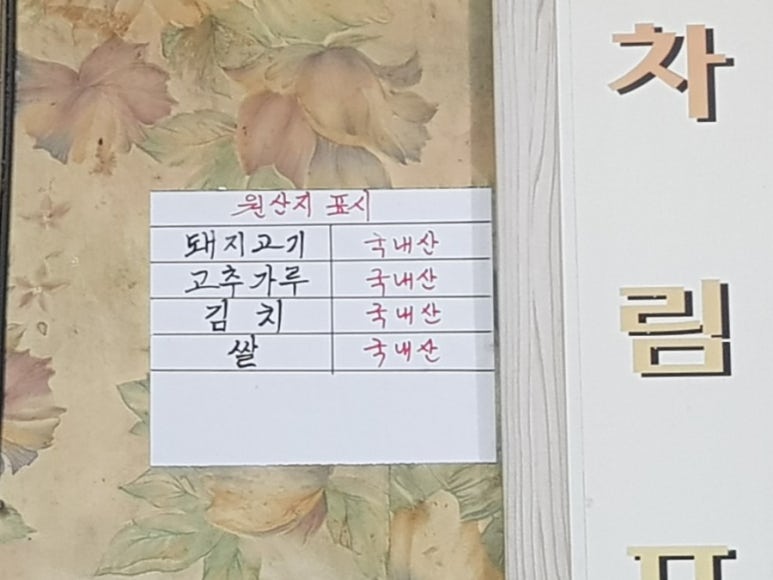 원산지 표시
돼지고기 국내산
고추가루 국내산
김 치 국내산
쌀 국내산
차
림
표